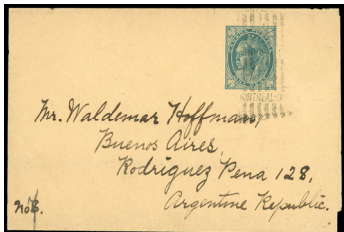 MONTREAL
Mr. Waldemar Hoffmann,
Buenos Aires,
Rodriguez Pena 128,
Argentine Republic.